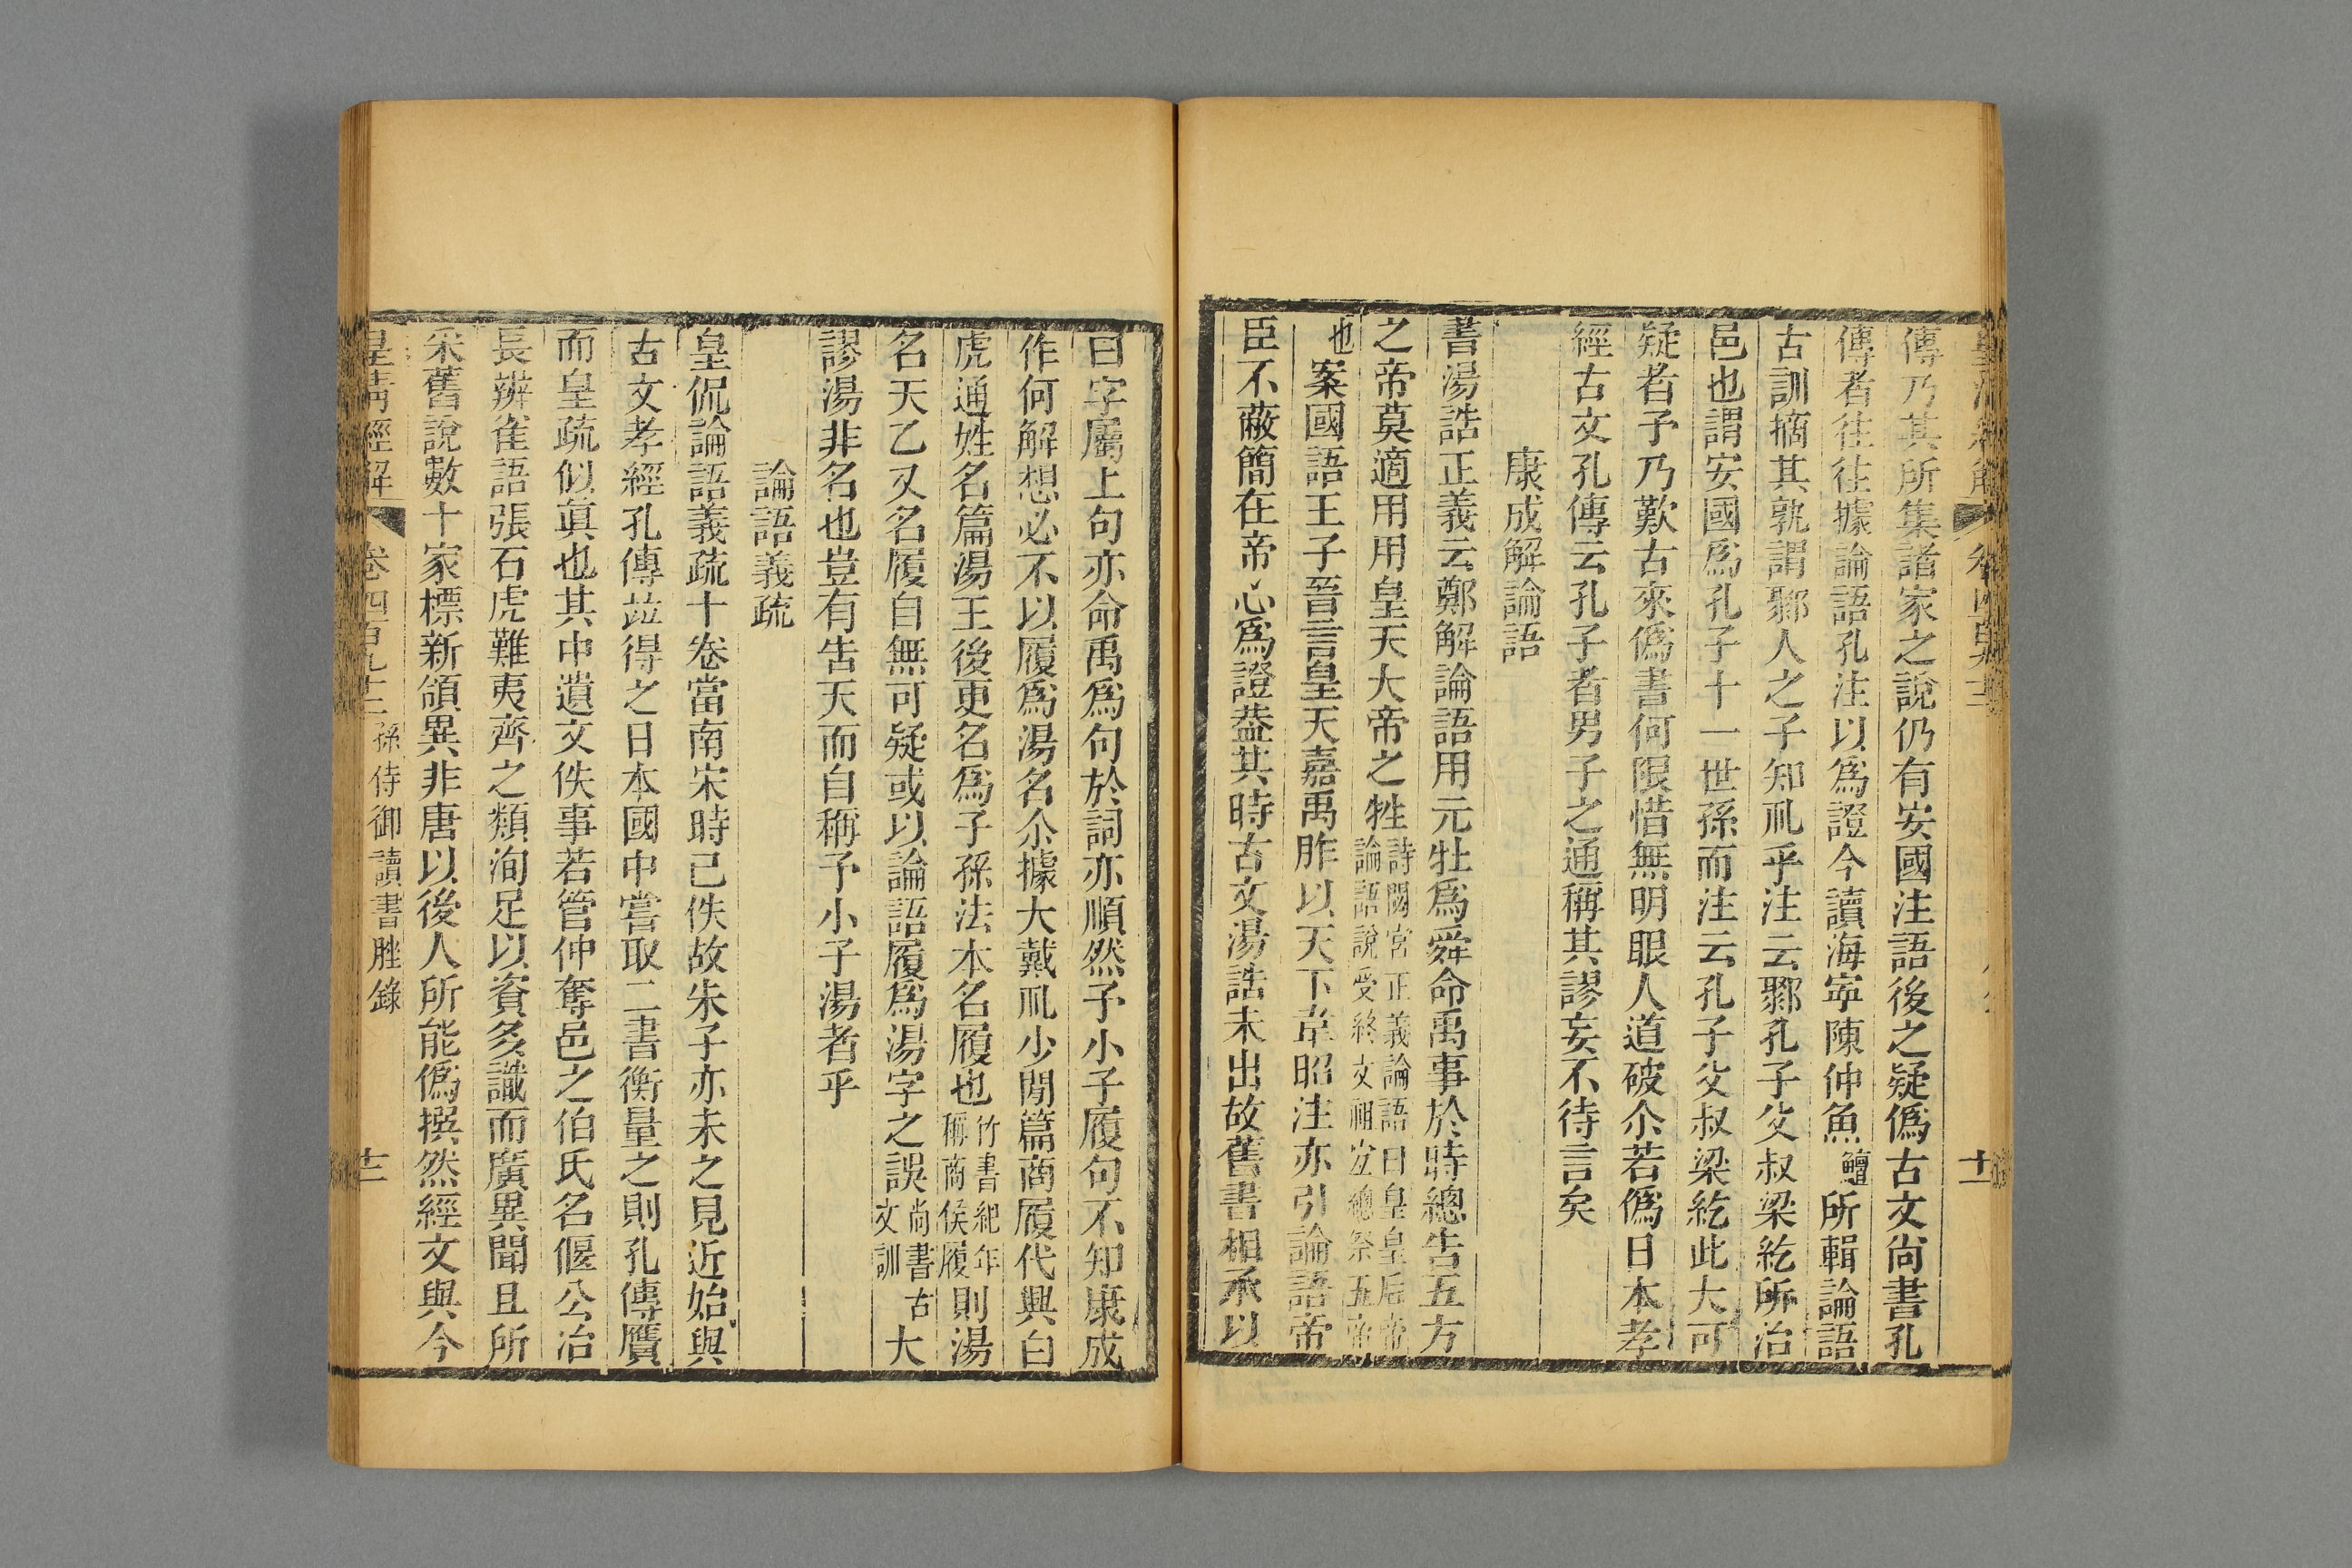 傳乃其所集諸家之說仍有安國注語後之疑僞古文尙書孔
傳者往往據論語孔注以爲證今讀海寧陳仲魚鱣所輯論語
古訓摘其孰謂鄹人之子知礼乎注云鄹孔子父叔梁紇所治
邑也謂安國爲孔子十一世孫而注云孔子父叔梁紇此大可
疑者予乃歎古來僞書何限惜無明眼人道破尒若僞日本孝
經古文孔傳云孔子者男子之通稱其謬妄不待言矣
康成解論語
書湯誥正義云鄭解論語用元牡爲舜命禹事於時總告五方
之帝莫適用用皇天大帝之牲詩閟宮正義論語曰皇皇后帝
論語說受終文祖宜總祭五帝
也案國語王子晉言皇天嘉禹胙以天下韋昭注亦引論語帝
臣不蔽簡在帝心爲證葢其時古文湯誥未出故舊書相承以
曰字屬上句亦命禹爲句於詞亦順然予小子履句不知康成
作何解想必不以履爲湯名尒據大戴礼少閒篇商履代興白
虎通姓名篇湯王後更名爲子孫法本名履也竹書紀年
稱商侯履則湯
名天乙又名履自無可疑或以論語履爲湯字之誤尚書古
文訓大
謬湯非名也豈有告天而自稱予小子湯者乎
論語義疏
皇侃論語義疏十卷當南宋時已佚故朱子亦未之見近始與
古文孝經孔傳竝得之日本國中嘗取二書衡量之則孔傳贋
而皇疏似眞也其中遺文佚事若管仲奪邑之伯氏名偃公冶
長辨雀語張石虎難夷齊之類洵足以資多識而廣異聞且所
采舊說數十家標新領異非唐以後人所能僞撰然經文與今
皇清經解 卷四百九十二 孫侍御讀書脞錄 十二